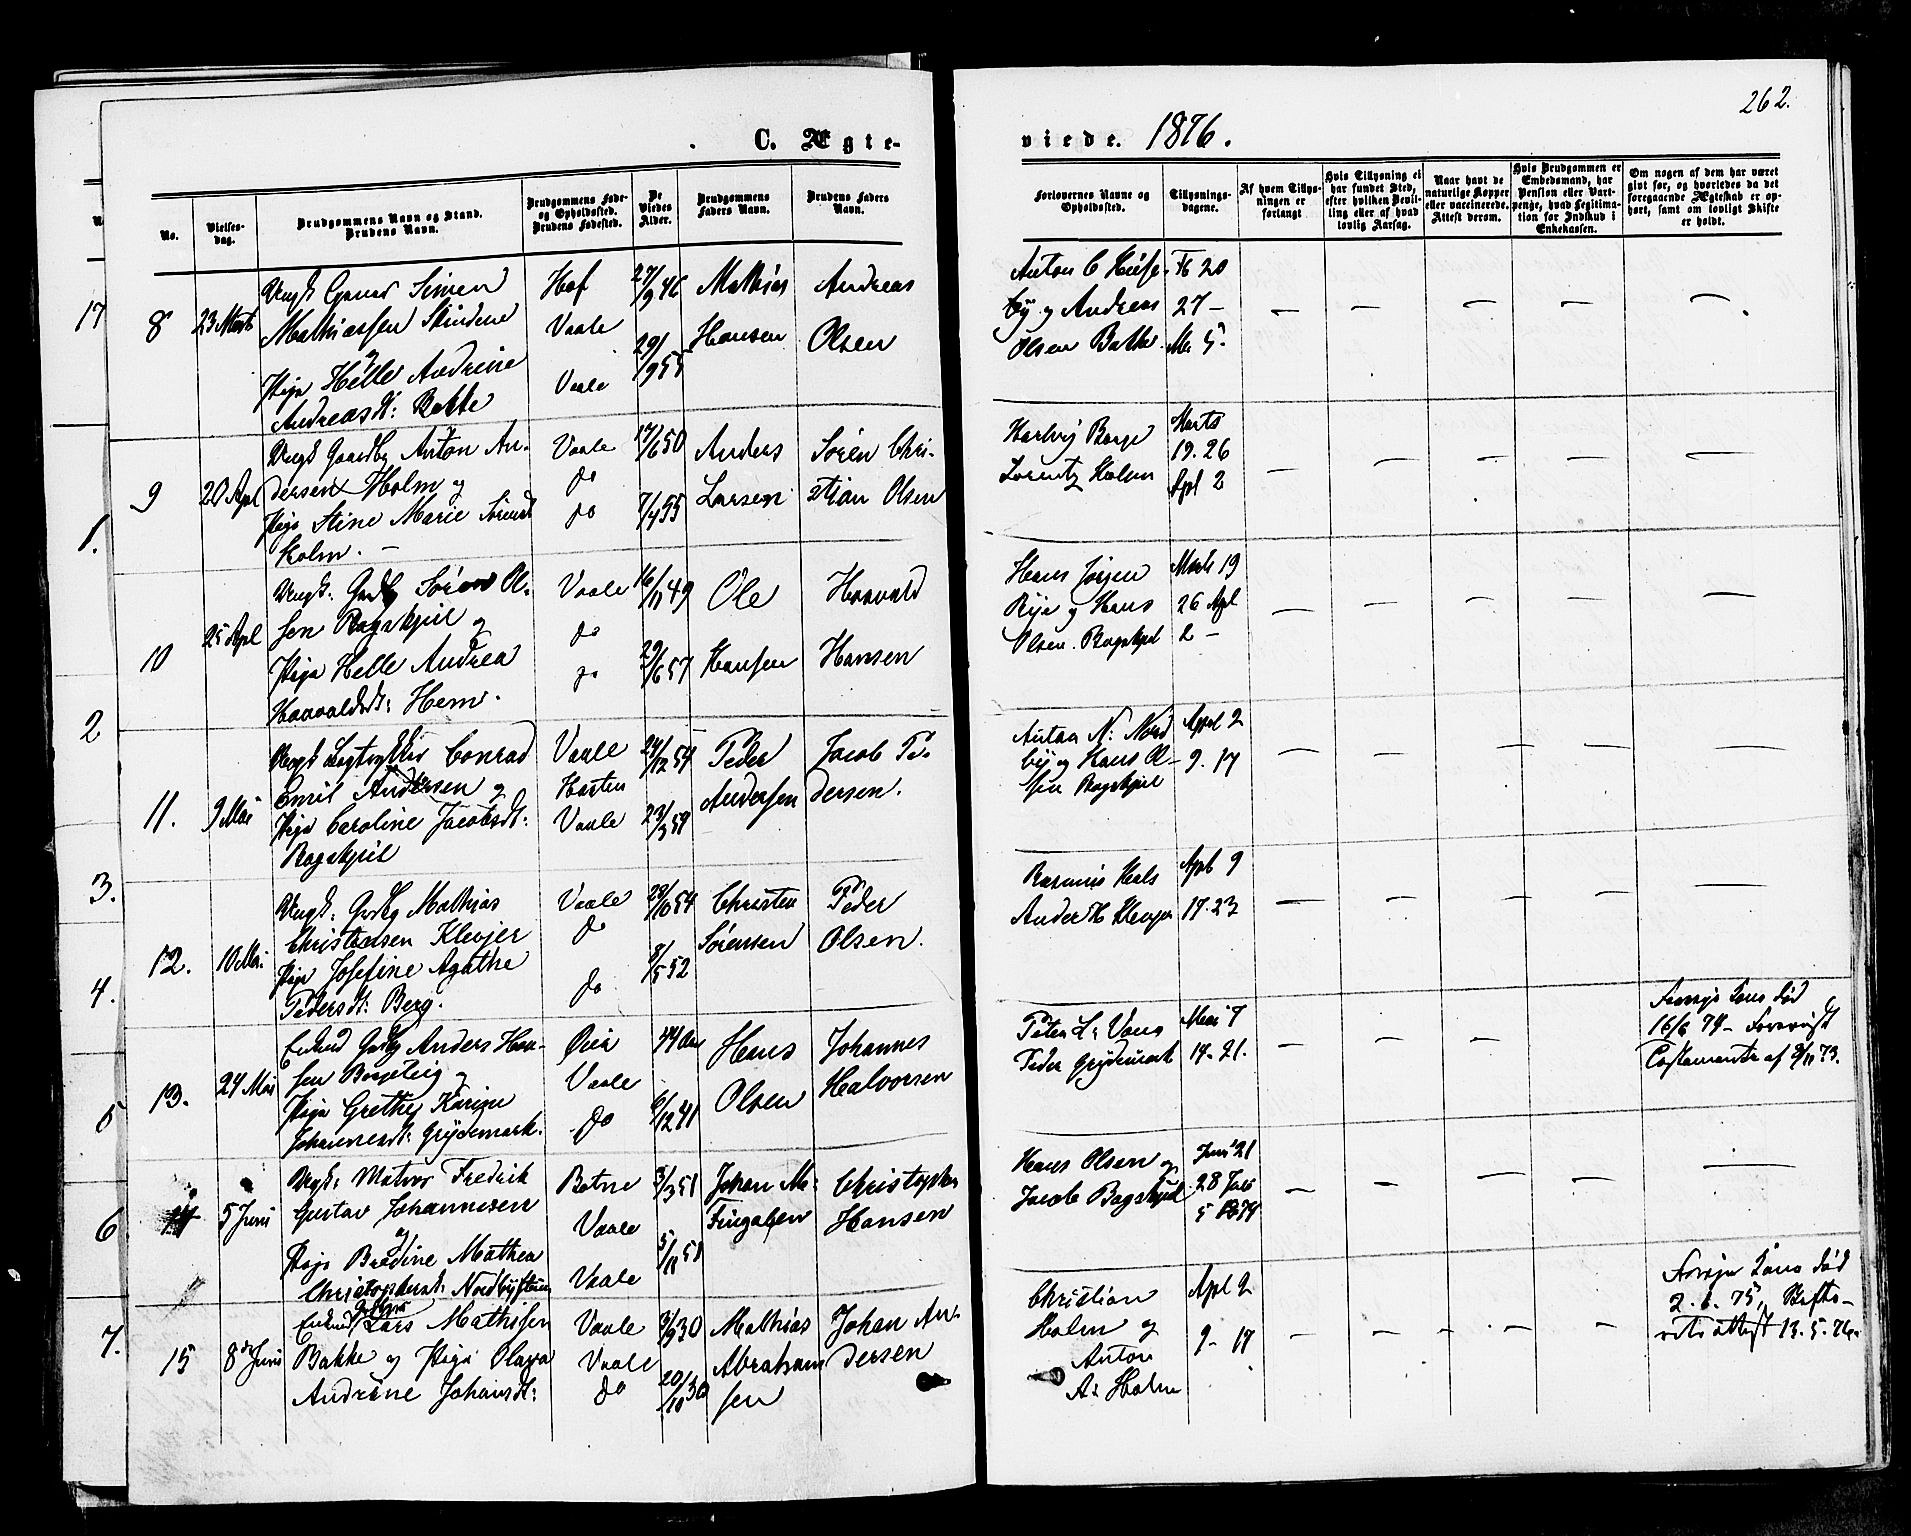 262.
C. Ægte-
viede. 1876.
No.
Vielses-
dag.
Brudgommens Navn og Stand.
Brudens Navn.
Brudgommens Føde-
og Opholdssted.
Brudens Fødested.
De
Viedes
Alder.
Brudgommens
Faders Navn.
Brudens Faders
Navn.
Forlovernes Navne og
Opholdssted.
Tillysnings-
dagene.
Af hvem Tillys-
ningen er
forlangt
Hvis Tillysning ei
har fundet Sted,
efter hvilken Bevil-
ling eller af hvad
lovlig Aarsag.
Naar havt de
naturlige Kopper
eller vaccinerede.
Attest derom.
Hvis Brudgommen er
Embedsmand, har
Pension eller Vart-
penge, hvad Legitima-
tion for Indskud i
Enkekassen.
Om nogen af dem har været
givt før, og hvorledes da det
foregaaende Ægteskab er op-
hørt, samt om lovligt Skifte
er holdt.
17
1.
2
3.
4.
5
6
7.
8 23 Marts
Ungk Simen
Mathiassen
Pige Helle Andrine
Andreasdt: Bakke
Hof
Vaale
Vaale
27/9 46
29/9 55
Mathias
Hansen
Andreas
Olsen
Anton C
by og Andreas
Olsen Bakke
F 20
27 —
Ma 5
9 20 Apl
Ungk Gaardbr Anton An-
dersen Holm og
Pige Stine Marie
Holm. —
Vaale
do
do
17/6 50
7/4 55
Anders
Larsen
Søren Chri-
stian Olsen
Lorentz Holm
Marts
19. 26
Apl 2
10 25 Apl
Ungk: Gaardbr Søren Ol-
sen Bagskjil og
Pige Helle Andrea
Haavaldsdt: Hem.
Vaale
do
do
16/11 49
29/6 57
Ole
Hansen
Haavald
Hansen
Hans Jørgen
Rye og Hans
Olsen. Bagskjel
Marts 19
26 Apl
2 —
11. 9 Mai
Ungk Conrad
Emil Andersen og
Pige Caroline Jacobsdt:
Bagskjil
Vaale
Horten
Vaale
24/12 54
23/3 59
Peder
Andersen
Jacob Pe-
dersen.
Anton N: Nord
by og Hans Ol-
sen Bagskjel
Apl 2
9. 17
12. 10 Mai
Ungk: Gaardbr Mathias
Christensen Klevjer
Pige Josefine Agathe
Pedersdt: Berg.
Vaale
do
do
28/10 54
8/5 52
Christen
Sørensen
Peder
Olsen.
Rasmus
Ander H Klevjer
Apl 9
17. 23
13. 24 Mai
Enkmd Gaardbr Anders Han-
sen og
Pige Grethe Karine
Johannesdt: Grydemark.
Vaale
do
44 Aar
6/12 41
Hans
Olsen
Johannes
Halvorsen
Peter L:
Peder Grydemark
Mai 7
14. 21.
Forrige Kone død
16/6 74 —
Testamente af 9/11 73.
14 5 Juni
Ungk: Matros Fredrik
Gustav Johannesen
og
Pige Bredine Mathea
Christophersdt:
Botne
Vaale
Vaale
3/3 51
5/11 51
Johan M:
Christopher
Hansen
Hans Olsen og
Jacob Bagskjel
21
28
5
15 8de Juni
Enkmd Lars Mathisen
Bakke og Pige Olava
Andrine Johansdt:
Vaale
Vaale
do
3/9 30
20/10 30
Mathias
Abraham
sen
Johan An-
dersen
Christian
Holm og
Anton
A: Holm
Apl 2
9 — 17
Forrige Kone død
2. 6. 75, Skifte-
rets attest 13. 5. 76.